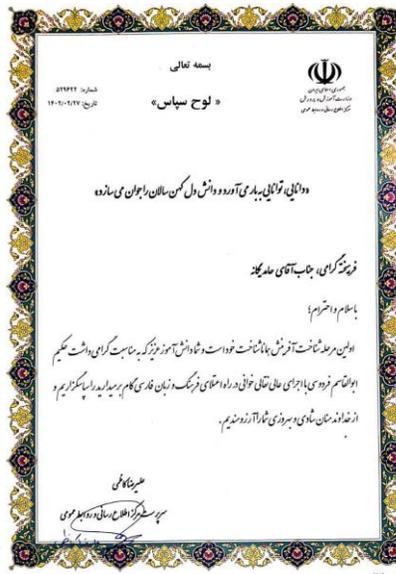 بسمه تعالی
جمهوری اسلامی ایران
وزارت آموزش و پرورش
مرکز اطلاع رسانی و روابط عمومی
« لوح سپاس»
شماره: ۵۲۹۶۲۲
تاریخ: ۱۴۰۲/۰۲/۲۷
«دانایی، توانایی به بار می آورد و دانش دل کهن سالان را جوان می سازد»
فرهیخته گرامی، جناب آقای حامد یگانه
با سلام و احترام؛
اولین مرحله شناخت آفرینش همانا شناخت خود است و شما دانش آموز عزیز که به مناسبت گرامی داشت حکیم
ابوالقاسم فردوسی با اجرای عالی نقالی خوانی در راه اعتلای فرهنگ و زبان فارسی گام برمیدارید را سپاسگزاریم و
از خداوند منان شادی و بهروزی شما را آرزومندیم.
علیرضا کاظمی
سرپرست مرکز اطلاع رسانی و روابط عمومی